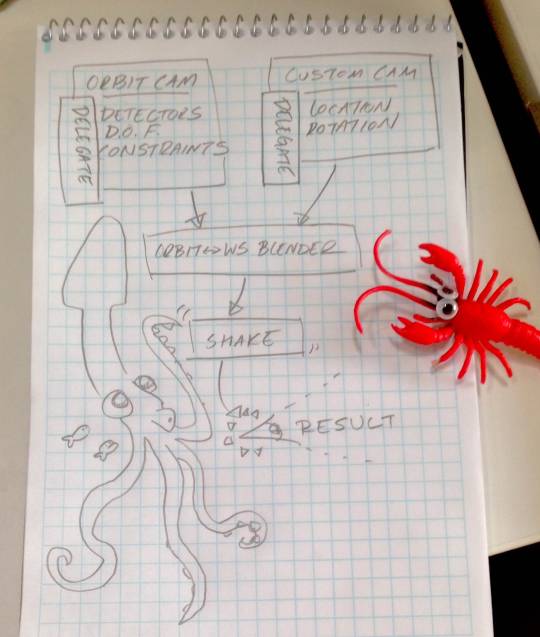 ORBIT CAM
DELEGATE
DETECTORS
D.O.F.
CONSTRAINTS
CUSTOM CAM
DELEGATE
LOCATION
ROTATION
ORBIT↔WS BLENDER
SHAKE
RESULT